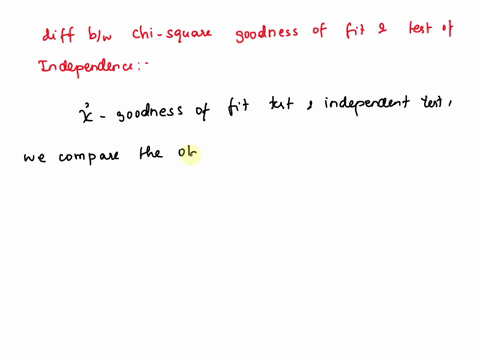 diff b/w chi-square goodness of fit & test of
Independence:-
χ² - goodness of fit test & independent test,
we compare the ob